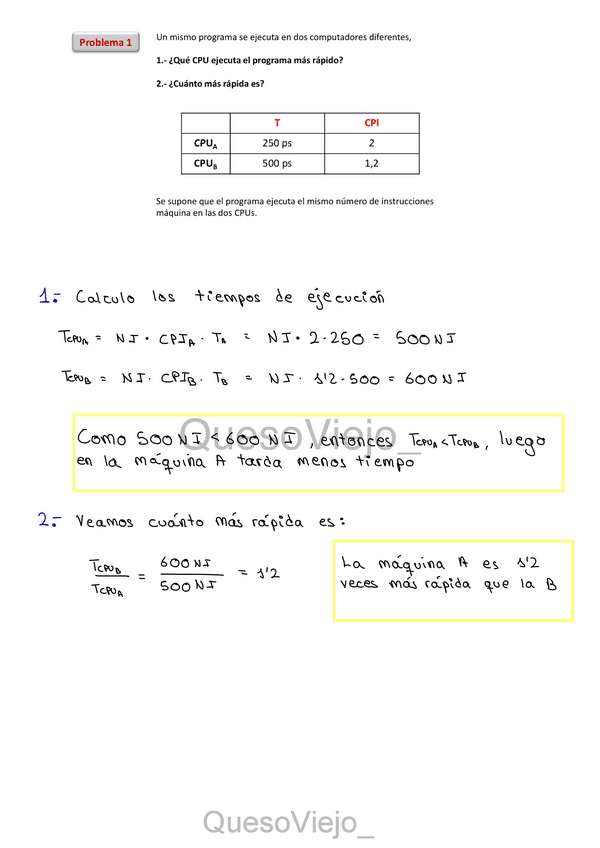 Problema 1
Un mismo programa se ejecuta en dos computadores diferentes,
1.- ¿Qué CPU ejecuta el programa más rápido?
2.- ¿Cuánto más rápida es?
T CPI
CPU_A 250 ps 2
CPU_B 500 ps 1,2
Se supone que el programa ejecuta el mismo número de instrucciones
máquina en las dos CPUs.
1.- Calculo los tiempos de ejecución
T_CPU_A = NI · CPI_A · T_A = NI · 2 · 250 = 500 NI
T_CPU_B = NI · CPI_B · T_B = NI · 1'2 · 500 = 600 NI
Como 500 NI < 600 NI, entonces T_CPU_A < T_CPU_B, luego
en la máquina A tarda menos tiempo
QuesoViejo_
2.- Veamos cuánto más rápida es:
T_CPU_B / T_CPU_A = 600 NI / 500 NI = 1'2
La máquina A es 1'2
veces más rápida que la B
QuesoViejo_